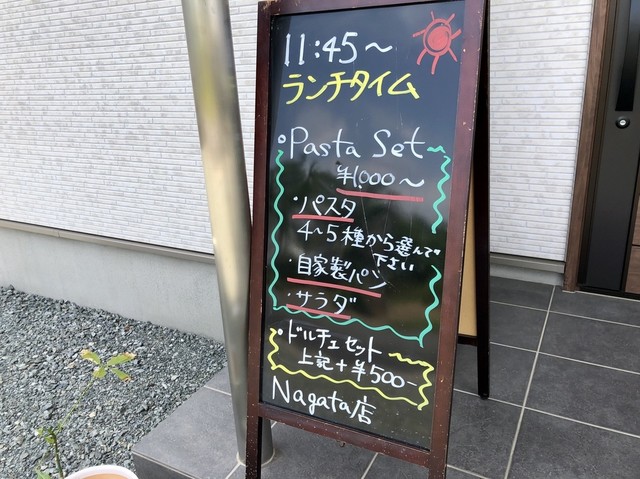 11:45～
ランチタイム
Pasta Set
¥1,000～
・パスタ
4～5種から選んで
下さい
・自家製パン
・サラダ
ドルチェセット
上記+¥500-
Nagata店